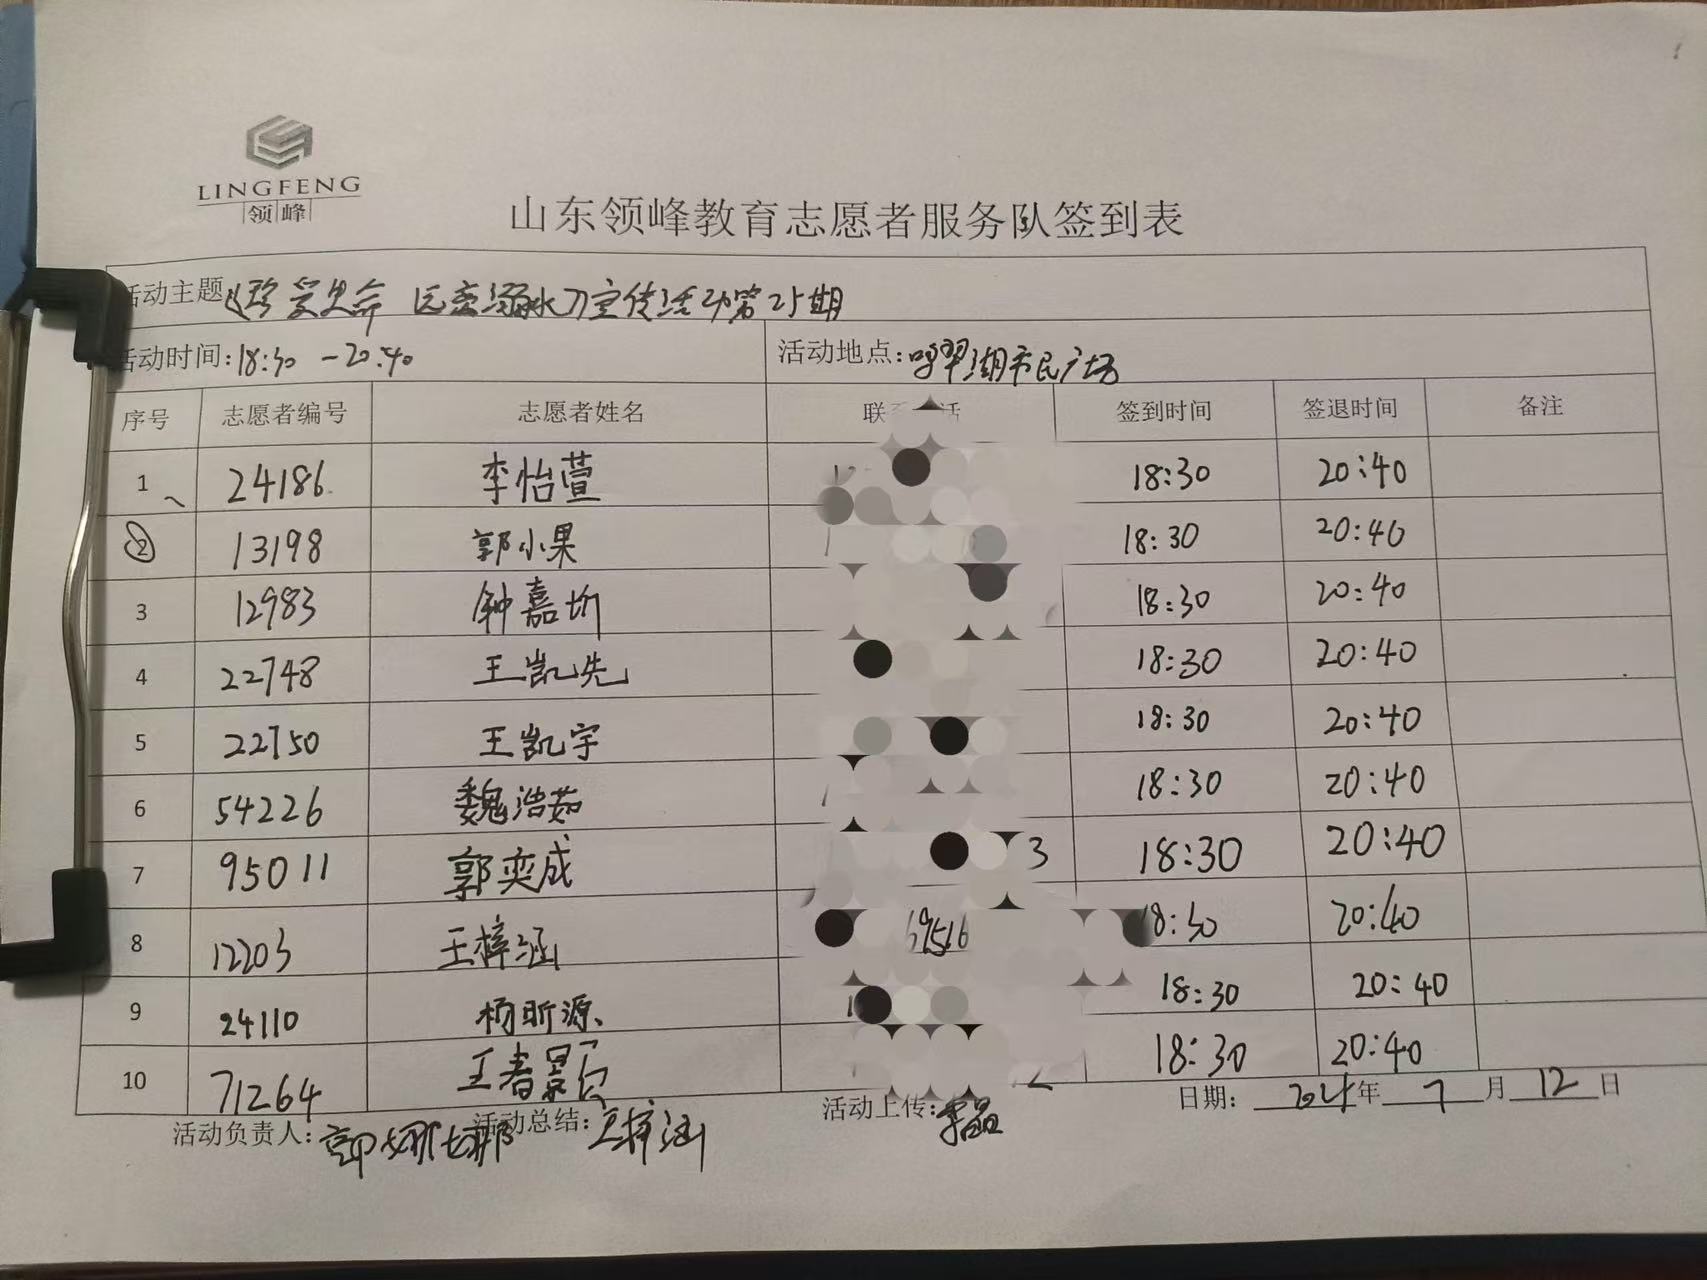 LINGFENG
领峰
山东领峰教育志愿者服务队签到表
活动主题《珍爱生命 远离溺水》宣传活动第25期
活动时间:18:30 -20:40 活动地点:鸣翠湖市民广场
序号 志愿者编号 志愿者姓名 联 话 签到时间 签退时间 备注
1 24186 李怡萱 18:30 20:40
② 13198 郭小果 18:30 20:40
3 12983 钟嘉昕 18:30 20:40
4 22748 王凯先 18:30 20:40
5 22750 王凯宇 18:30 20:40
6 54226 魏浩茹 18:30 20:40
7 95011 郭奕成 3 18:30 20:40
8 12203 王梓涵 18:30 20:40
9 24110 杨昕源 18:30 20:40
10 71264 王春 18:30 20:40
日期: 年 7 月 12 日
活动负责人:郭娜娜 活动总结:王梓涵 活动上传:李磊